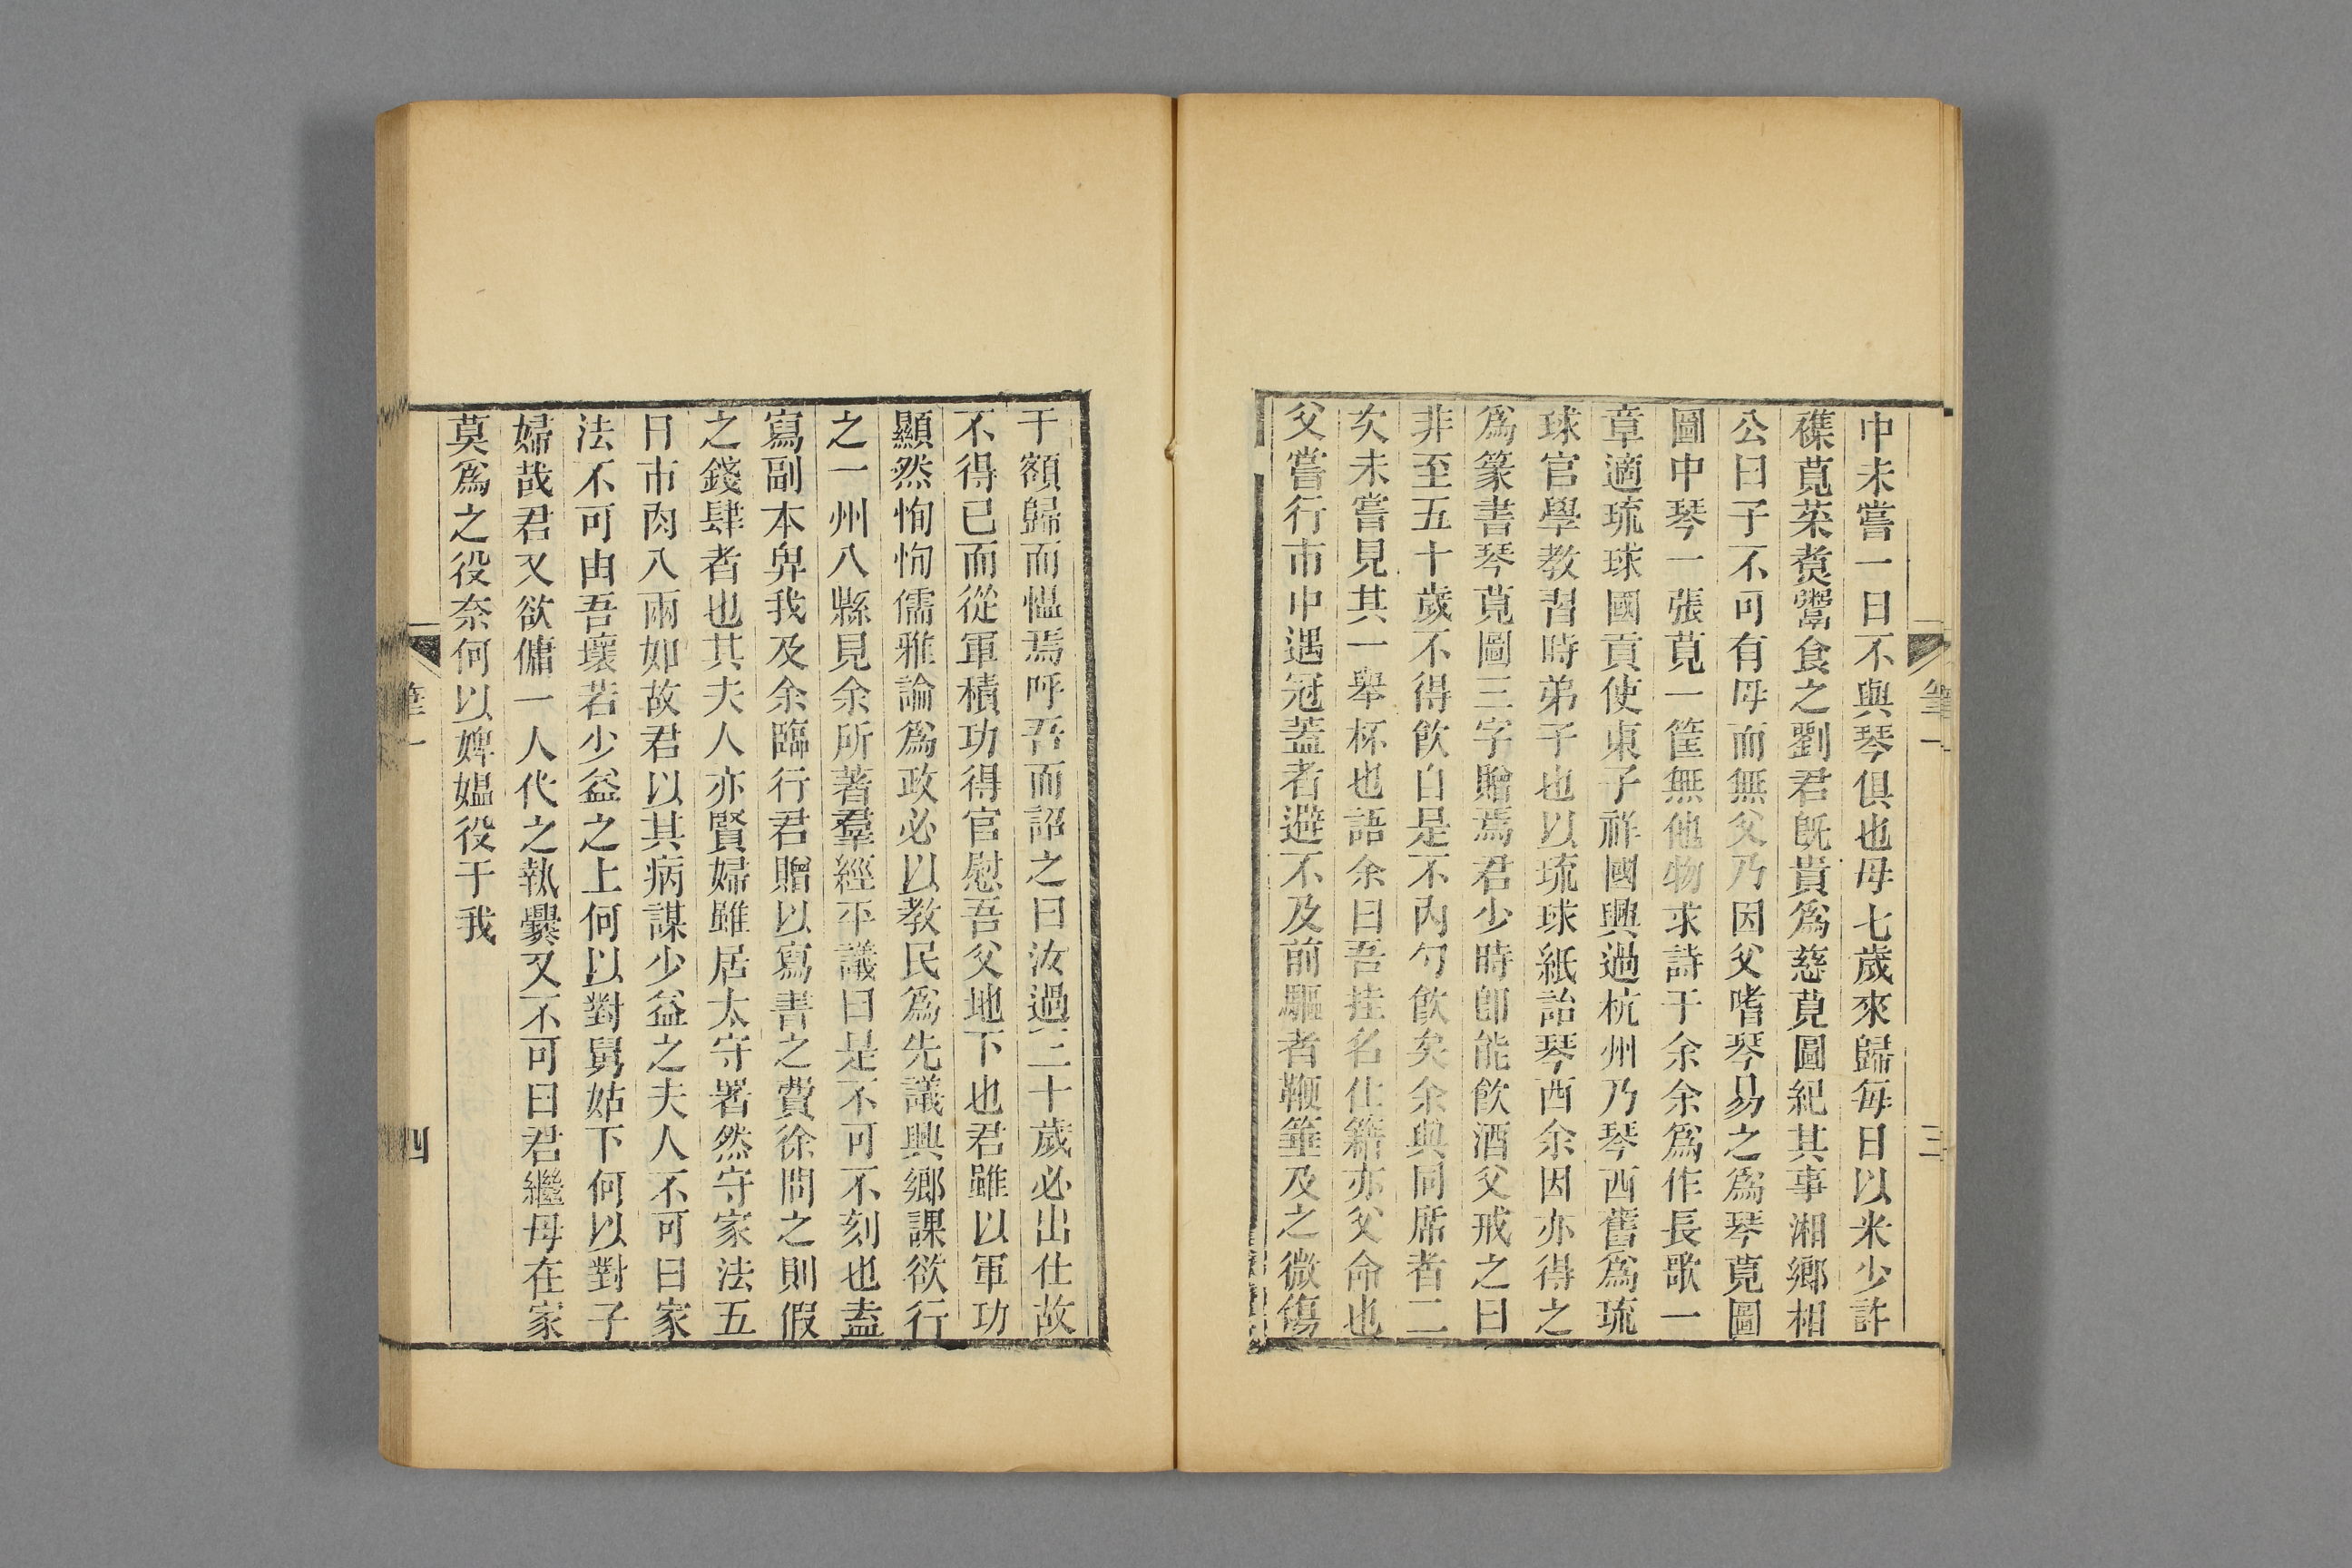 中未嘗一日不與琴俱也母七歲來歸每日以米少許
襍莧菜煑鬻食之劉君旣貴爲慈莧圖紀其事湘鄉相
公曰子不可有母而無父乃因父嗜琴易之爲琴莧圖
圖中琴一張莧一筐無他物求詩于余余爲作長歌一
章適琉球國貢使東子祥國興過杭州乃琴西舊爲琉
球官學教習時弟子也以琉球紙詒琴西余因亦得之
爲篆書琴莧圖三字贈焉君少時卽能飮酒父戒之曰
非至五十歲不得飮自是不內勺飮矣余與同席者二
次未嘗見其一舉杯也語余曰吾挂名仕籍亦父命也
父嘗行市中遇冠蓋者避不及前驅者鞭箠及之微傷
筆一
三
于額歸而慍焉呼吾而詔之曰汝過三十歲必出仕故
不得已而從軍積功得官慰吾父地下也君雖以軍功
顯然恂恂儒雅論爲政必以教民爲先議興鄉課欲行
之一州八縣見余所著羣經平議曰是不可不刻也盍
寫副本畀我及余臨行君贈以寫書之費徐問之則假
之錢肆者也其夫人亦賢婦雖居太守署然守家法五
日市肉八兩如故君以其病謀少益之夫人不可曰家
法不可由吾壞若少益之上何以對舅姑下何以對子
婦哉君又欲傭一人代之執爨又不可曰君繼母在家
莫爲之役奈何以婢媼役于我
筆一
四